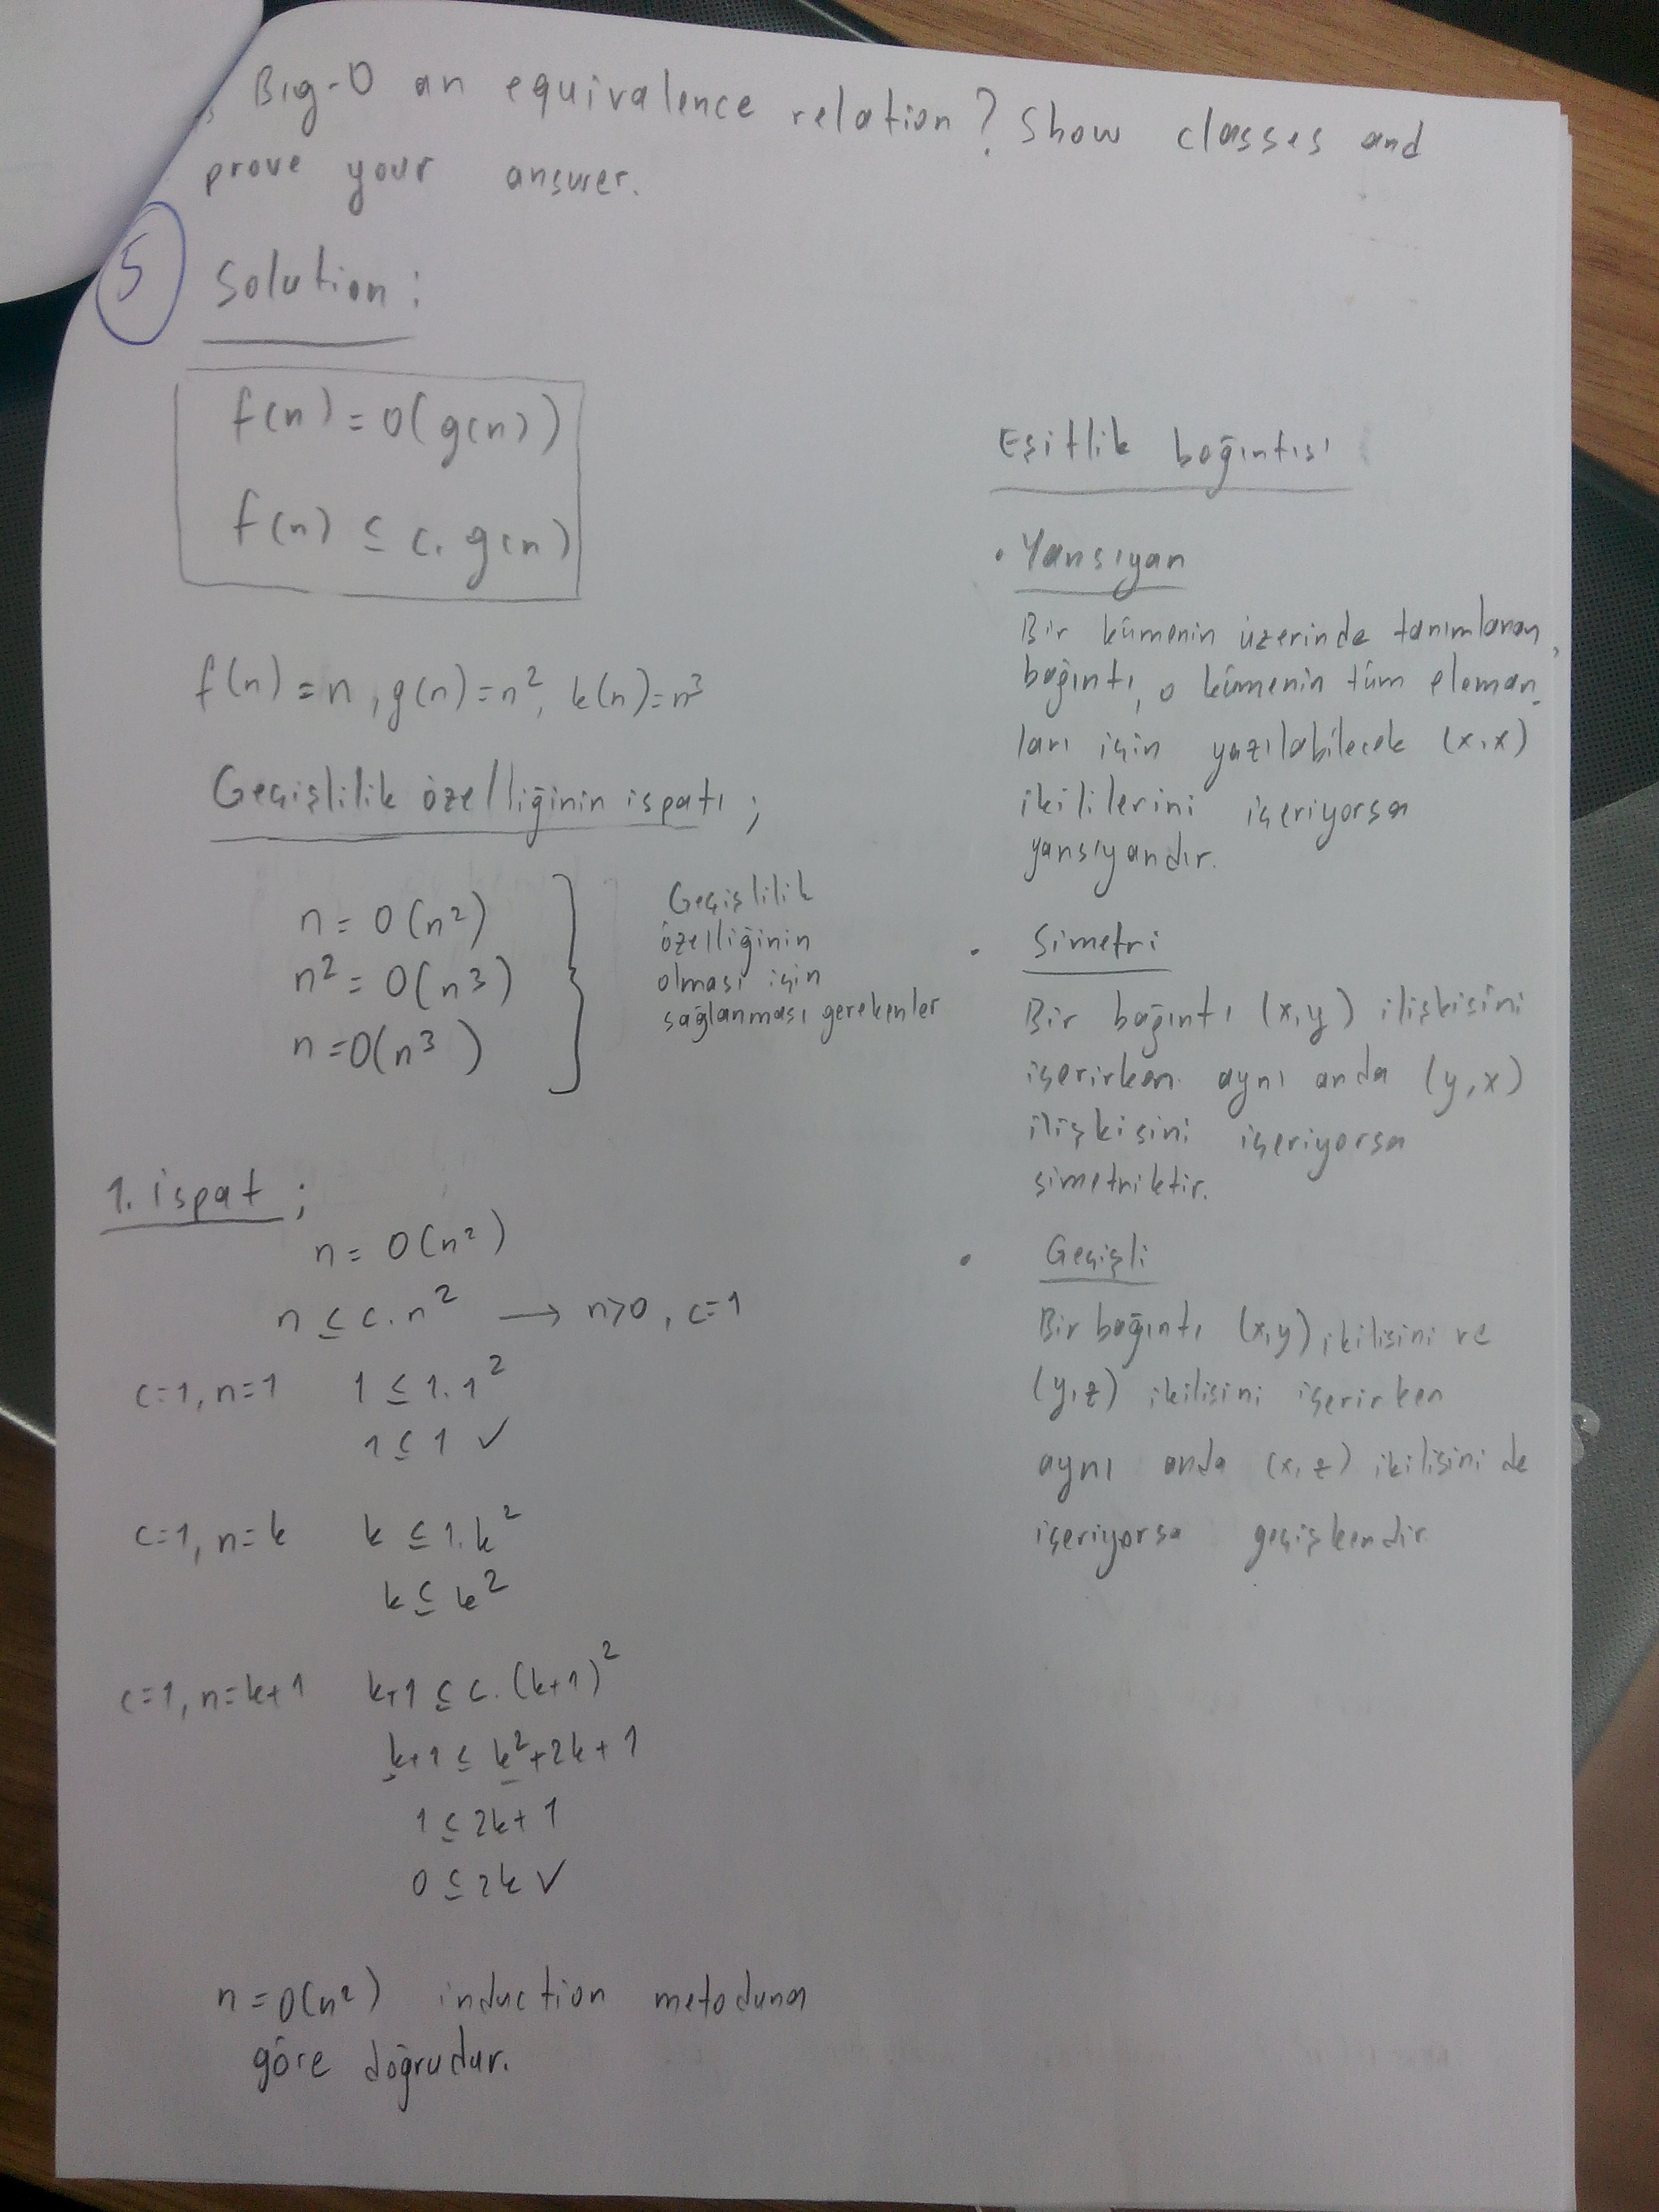 Big-O an equivalence relation? Show classes and
prove your answer.
5
Solution:
f(n) = O(g(n))
f(n) ≤ c. g(n)
f(n) = n, g(n) = n², k(n) = n³
Geçişlilik özelliğinin ispatı ;
n = O(n²)
n² = O(n³)
n = O(n³)
Geçişlilik
özelliğinin
olması için
sağlanması gerekenler
1. ispat ;
n = O(n²)
n ≤ c. n² → n>0, c=1
c=1, n=1 1 ≤ 1. 1²
1 ≤ 1 ✓
c=1, n=k k ≤ 1. k²
k ≤ k²
c=1, n=k+1 k+1 ≤ c. (k+1)²
k+1 ≤ k²+2k+1
1 ≤ 2k+1
0 ≤ 2k ✓
n = O(n²) induction metoduna
göre doğrudur.
Eşitlik bağıntısı
• Yansıyan
Bir kümenin üzerinde tanımlanan
bağıntı, o kümenin tüm eleman-
ları için yazılabilecek (x,x)
ikililerini içeriyorsa
yansıyandır.
• Simetri
Bir bağıntı (x,y) ilişkisini
içerirken aynı anda (y,x)
ilişkisini içeriyorsa
simetriktir.
• Geçişli
Bir bağıntı (x,y) ikilisini ve
(y,z) ikilisini içerirken
aynı anda (x,z) ikilisini de
içeriyorsa geçişkendir